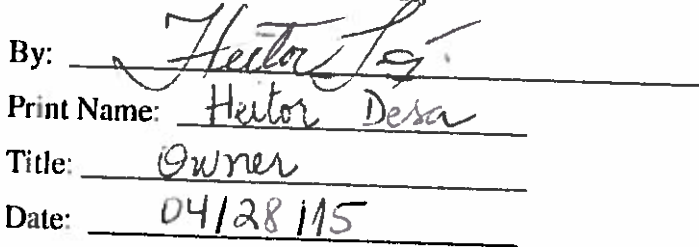 By: Heitor Sá
Print Name: Heitor Desa
Title: Owner
Date: 04/28/15